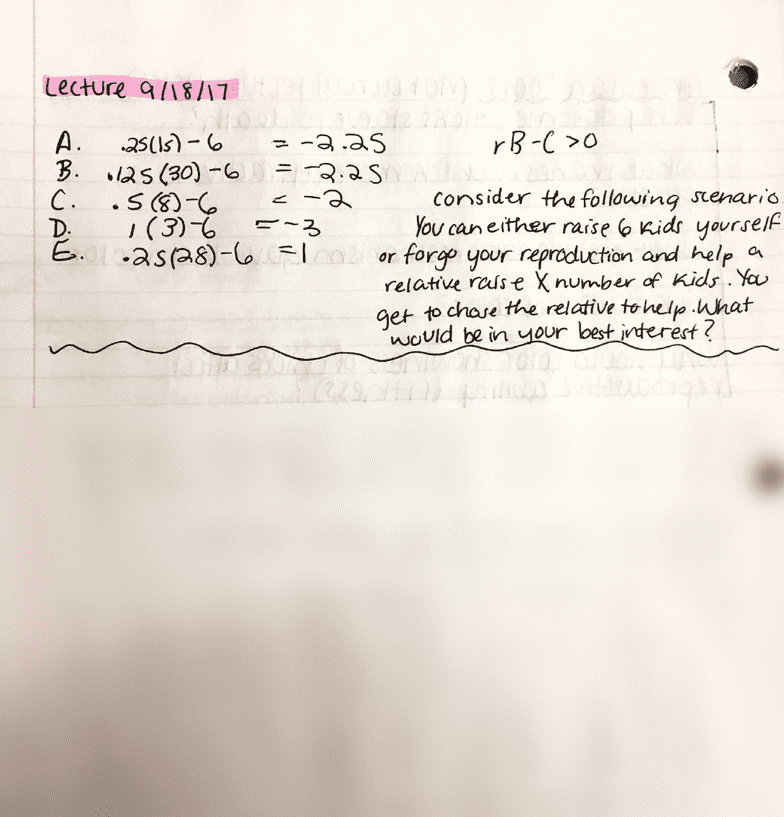 Lecture 9/18/17
A. .25(15)-6 = -2.25 rB-C >0
B. .125(30)-6 = -2.25
C. .5(8)-6 = -2 consider the following scenario.
D. 1(3)-6 = -3 You can either raise 6 kids yourself
E. .25(28)-6 =1 or forgo your reproduction and help a
relative raise X number of kids. You
get to chose the relative to help. What
would be in your best interest?